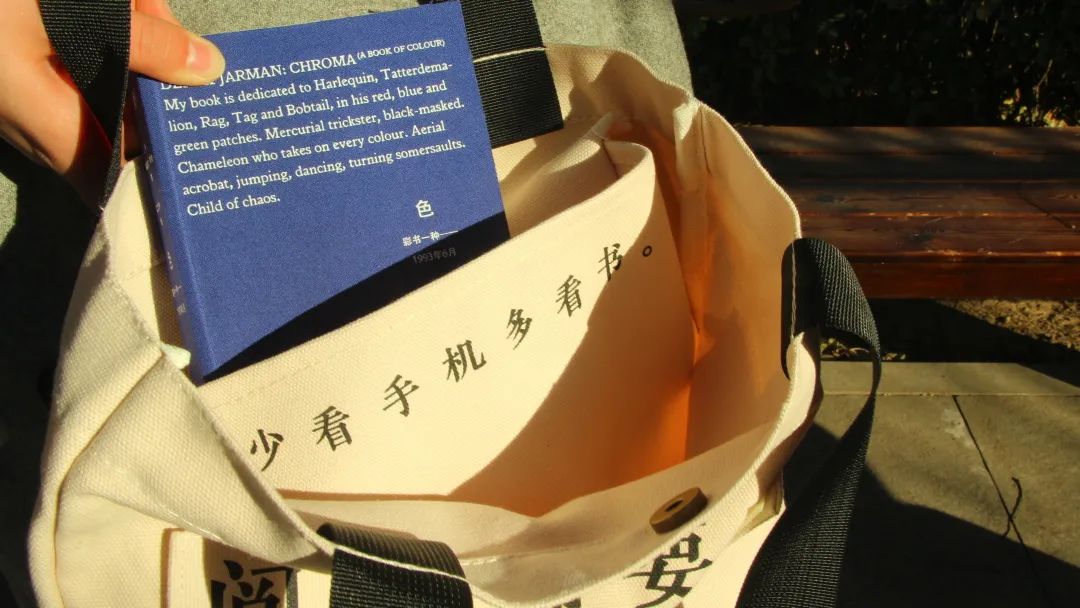 JARMAN: CHROMA (A BOOK OF COLOUR)
My book is dedicated to Harlequin, Tatterdema-
lion, Rag, Tag and Bobtail, in his red, blue and
green patches. Mercurial trickster, black-masked.
Chameleon who takes on every colour. Aerial
acrobat, jumping, dancing, turning somersaults.
Child of chaos.
色
彩书一种——
1993年6月
少看手机多看书。
阅